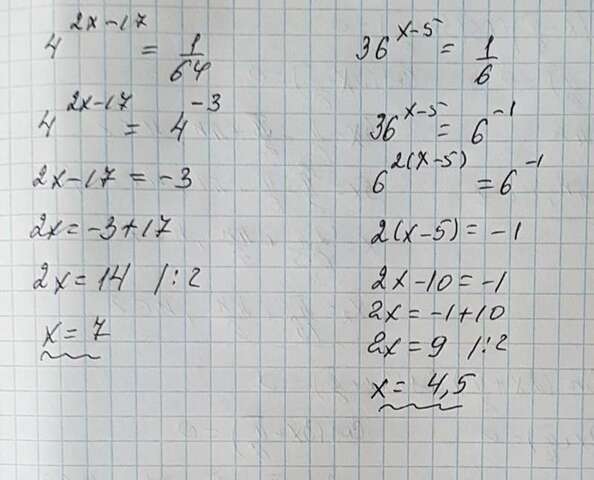 4^(2x-17) = 1/64
4^(2x-17) = 4^(-3)
2x-17 = -3
2x = -3+17
2x = 14 |:2
x = 7
36^(x-5) = 1/6
36^(x-5) = 6^(-1)
6^(2(x-5)) = 6^(-1)
2(x-5) = -1
2x-10 = -1
2x = -1+10
2x = 9 |:2
x = 4,5